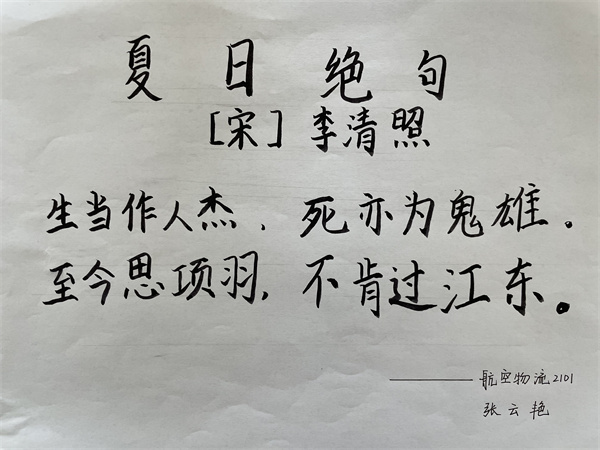 夏日绝句
[宋]李清照
生当作人杰，死亦为鬼雄。
至今思项羽，不肯过江东。
——航空物流2101
张云艳